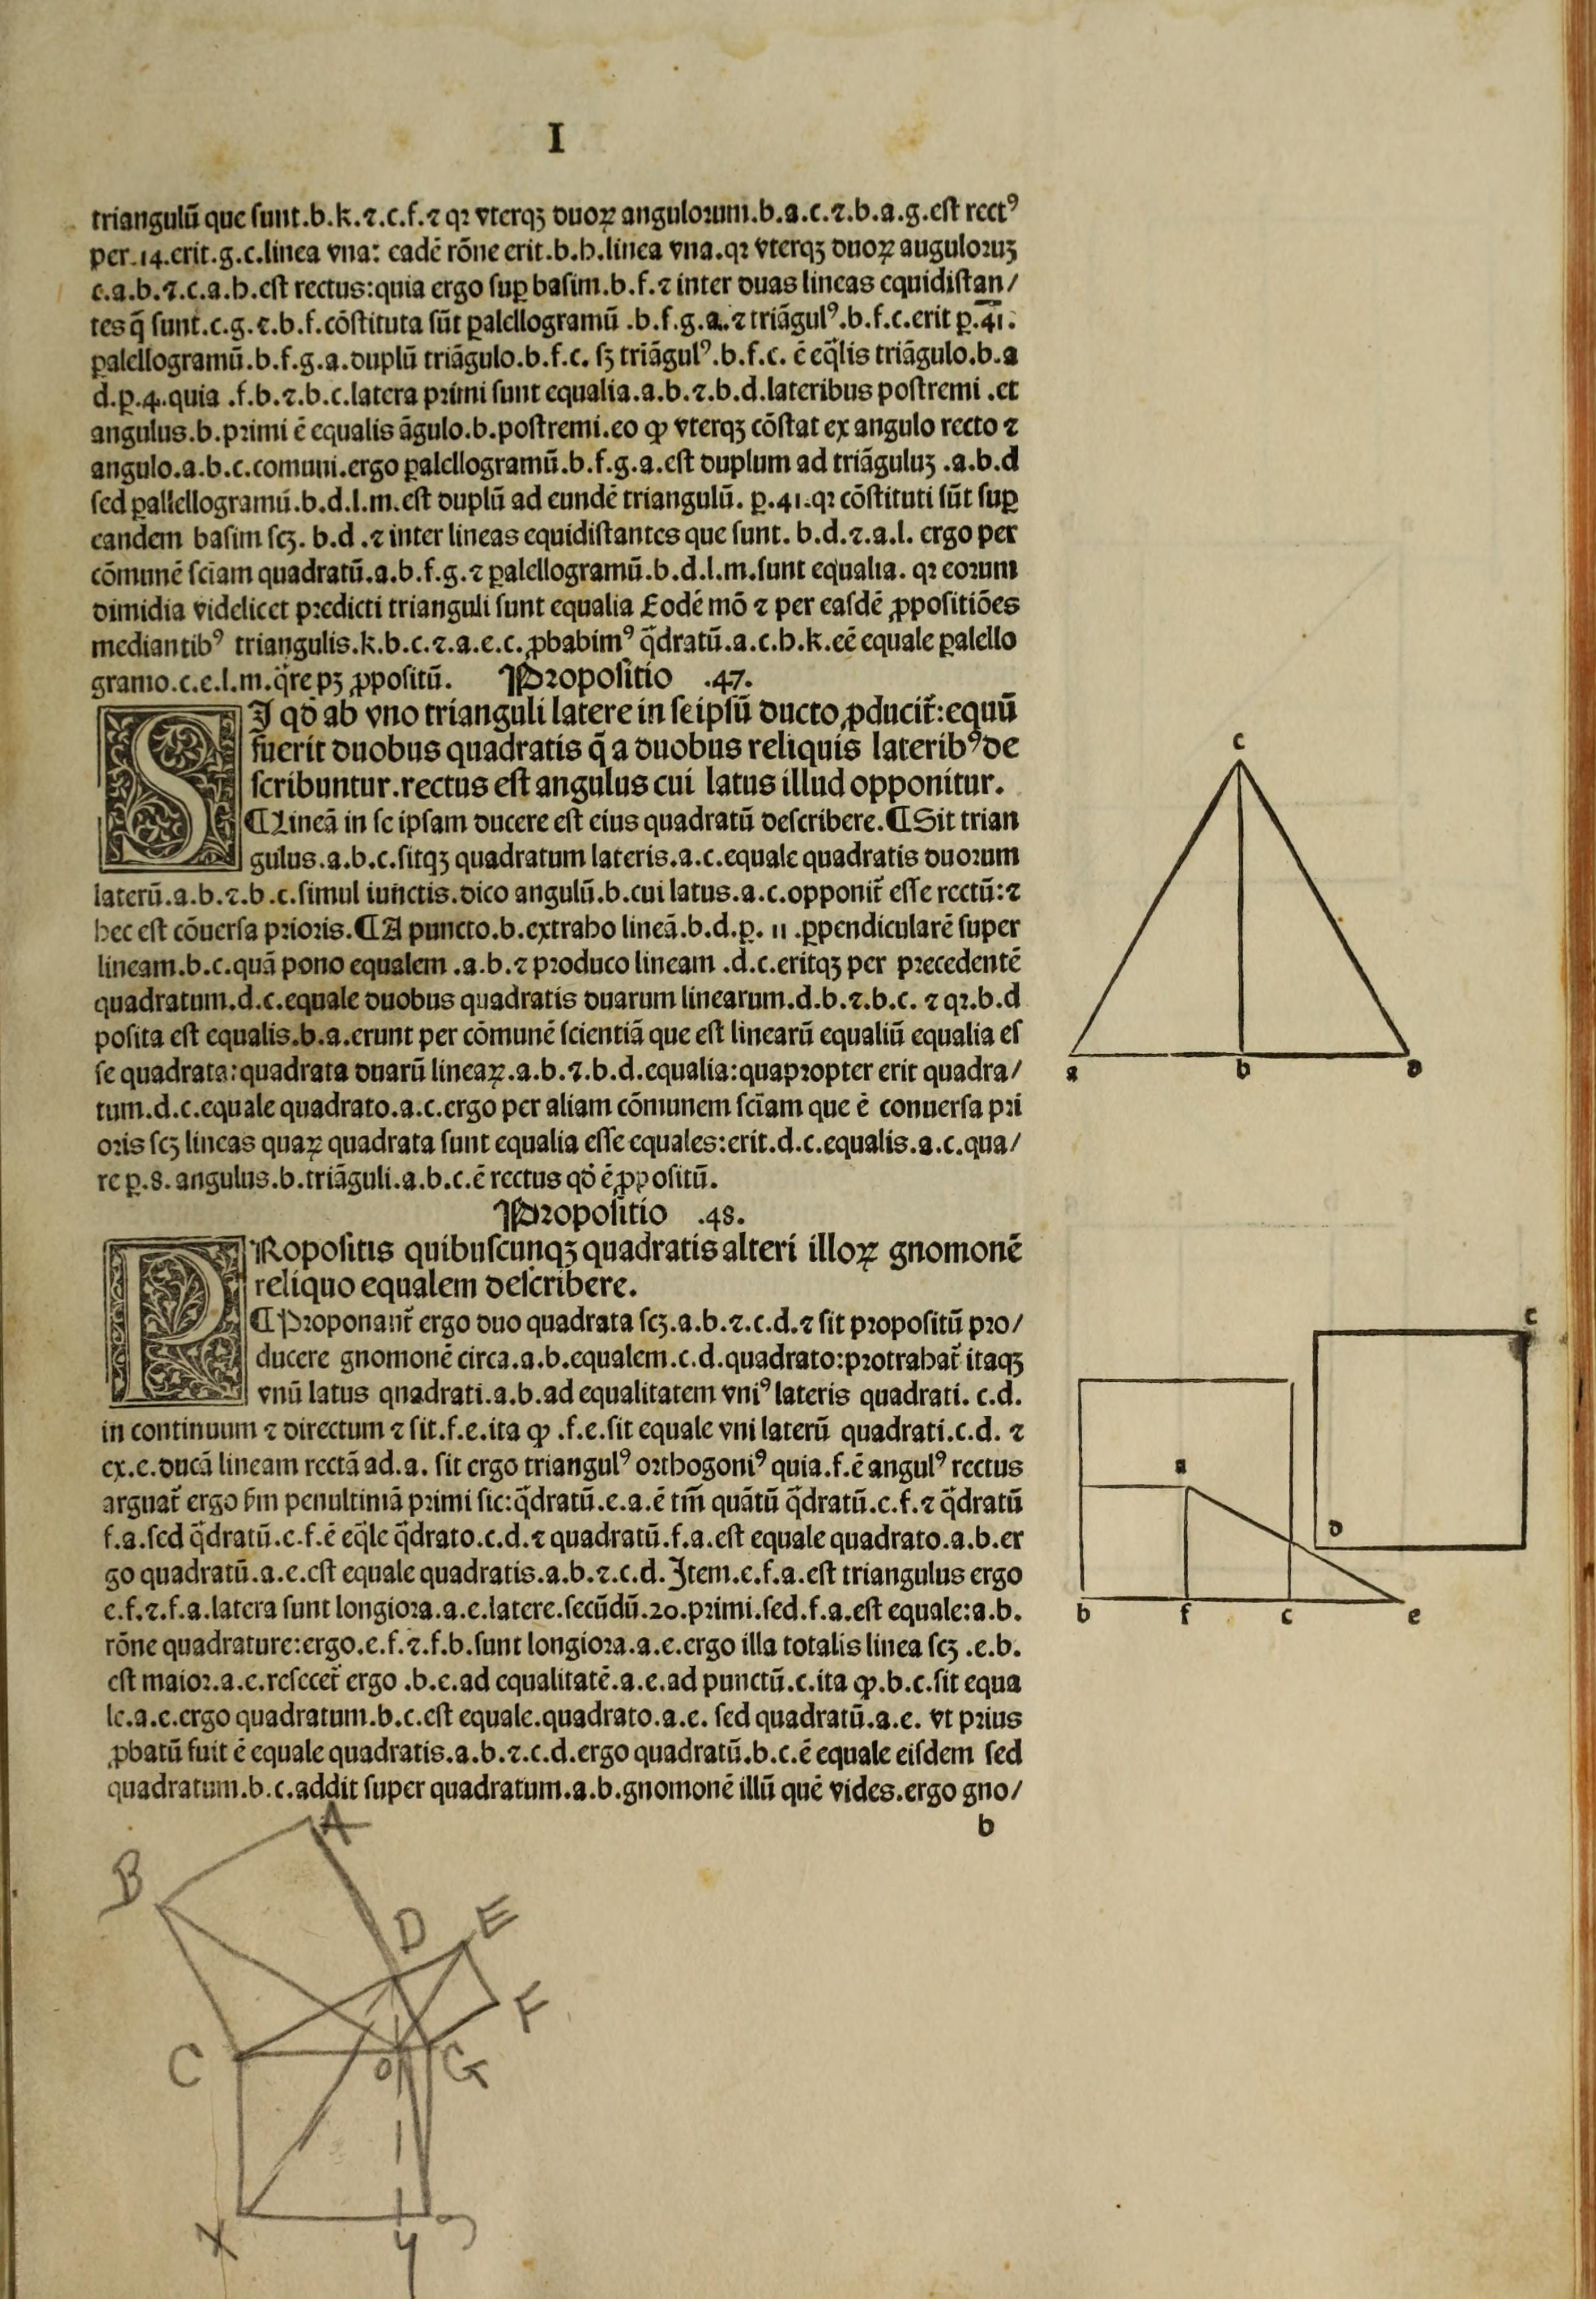 I
triangulū que ſunt.b.k.⁊.c.f.⁊ qꝛ vterqꝫ duoꝝ anguloꝛum.b.a.c.⁊.b.a.g.eſt rectꝰ
per.14.erit.g.c.linea vna: eadē rōne erit.b.h.linea vna.qꝛ vterqꝫ duoꝝ auguloꝛuꝫ
c.a.b.⁊.c.a.h.eſt rectus:quia ergo ſuꝑ baſim.b.f.⁊ inter duas lineas equidiſtan/
tes q̄ ſunt.c.g.⁊.b.f.cōſtituta ſūt ꝑalellogramū .b.f.g.a.⁊ triāgulꝰ.b.f.c.erit ꝑ.41.
ꝑalellogramū.b.f.g.a.duplū triāgulo.b.f.c. ſꝫ triāgulꝰ.b.f.c. ē eq̄lis triāgulo.b.a
d.ꝑ.4.quia .f.b.⁊.b.c.latera pꝛimi ſunt equalia.a.b.⁊.b.d.lateribus poſtremi .et
angulus.b.pꝛimi ē equalis āgulo.b.poſtremi.eo ꝙ vterqꝫ cōſtat ex angulo recto ⁊
angulo.a.b.c.comuni.ergo ꝑalellogramū.b.f.g.a.eſt duplum ad triāguluꝫ .a.b.d
ſed ꝑallellogramū.b.d.l.m.eſt duplū ad eundē triangulū. ꝑ.41.qꝛ cōſtituti ſūt ſuꝑ
eandem baſim ſcꝫ. b.d .⁊ inter lineas equidiſtantes que ſunt. b.d.⁊.a.l. ergo per
cōmunē ſciam quadratū.a.b.f.g.⁊ ꝑalellogramū.b.d.l.m.ſunt equalia. qꝛ eoꝛum
dimidia videlicet pꝛedicti trianguli ſunt equalia Eodē mō ⁊ per eaſdē ꝓpoſitiōes
mediantibꝰ triangulis.k.b.c.⁊.a.e.c.ꝓbabimꝰ q̄dratū.a.c.h.k.eē equale ꝑalello
gramo.c.e.l.m.q̄re pꝫ ꝓpoſitū. Pꝛopoſitio .47.
SI qd̄ ab vno trianguli latere in ſeipſū ducto ꝓducit̄:equū
fuerit duobus quadratis q̄ a duobus reliquis lateribꝰ de
ſcribuntur.rectus eſt angulus cui latus illud opponitur.
¶Lineā in ſe ipſam ducere eſt eius quadratū deſcribere.¶Sit trian
gulus.a.b.c.ſitqꝫ quadratum lateris.a.c.equale quadratis duoꝛum
laterū.a.b.⁊.b.c.ſimul iunctis.dico angulū.b.cui latus.a.c.opponit̄ eſſe rectū:⁊
hec eſt cōuerſa pꝛioꝛis.¶A puncto.b.extraho lineā.b.d.ꝑ. 11 .ꝑpendicularē ſuper
lineam.b.c.quā pono equalem .a.b.⁊ pꝛoduco lineam .d.c.eritqꝫ per pꝛecedentē
quadratum.d.c.equale duobus quadratis duarum linearum.d.b.⁊.b.c. ⁊ qꝛ.b.d
poſita eſt equalis.b.a.erunt per cōmunē ſcientiā que eſt linearū equaliū equalia eſ
ſe quadrata:quadrata duarū lineaꝝ.a.b.⁊.b.d.equalia:quapꝛopter erit quadra/
tum.d.c.equale quadrato.a.c.ergo per aliam cōmunem ſciam que ē conuerſa pꝛi
oꝛis ſcꝫ lineas quaꝝ quadrata ſunt equalia eſſe equales:erit.d.c.equalis.a.c.qua/
re ꝑ.8. angulus.b.triāguli.a.b.c.ē rectus qd̄ ē ꝓpoſitū.
Pꝛopoſitio .48.
PRopoſitis quibuſcunqꝫ quadratis alteri illoꝝ gnomonē
reliquo equalem deſcribere.
¶Pꝛoponant̄ ergo duo quadrata ſcꝫ.a.b.⁊.c.d.⁊ ſit pꝛopoſitū pꝛo/
ducere gnomonē circa.a.b.equalem.c.d.quadrato:pꝛotrahat̄ itaqꝫ
vnū latus qnadrati.a.b.ad equalitatem vniꝰ lateris quadrati. c.d.
in continuum ⁊ directum ⁊ ſit.f.e.ita ꝙ .f.e.ſit equale vni laterū quadrati.c.d. ⁊
ex.e.ducā lineam rectā ad.a. ſit ergo triangulꝰ oꝛthogoniꝰ quia.f.ē angulꝰ rectus
arguat̄ ergo ẜm penultimā pꝛimi ſic:q̄dratū.e.a.ē tm̄ quātū q̄dratū.e.f.⁊ q̄dratū
f.a.ſed q̄dratū.e.f.ē eq̄le q̄drato.c.d.⁊ quadratū.f.a.eſt equale quadrato.a.b.er
go quadratū.a.e.eſt equale quadratis.a.b.⁊.c.d.Item.e.f.a.eſt triangulus ergo
e.f.⁊.f.a.latera ſunt longioꝛa.a.e.latere.ſecūdū.20.pꝛimi.ſed.f.a.eſt equale:a.b.
rōne quadrature:ergo.e.f.⁊.f.b.ſunt longioꝛa.a.e.ergo illa totalis linea ſcꝫ .e.b.
eſt maioꝛ.a.e.reſecet̄ ergo .b.e.ad equalitatē.a.e.ad punctū.c.ita ꝙ.b.c.ſit equa
le.a.e.ergo quadratum.b.c.eſt equale.quadrato.a.e. ſed quadratū.a.e. vt pꝛius
ꝓbatū fuit ē equale quadratis.a.b.⁊.c.d.ergo quadratū.b.c.ē equale eiſdem ſed
quadratum.b.c.addit ſuper quadratum.a.b.gnomonē illū quē vides.ergo gno/
b
c
a b d
c
a
d
b f c e
A
B
D E
F
C O G
X
y